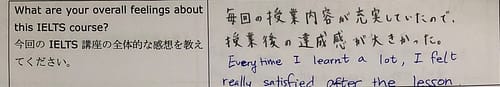 What are your overall feelings about
this IELTS course?
今回の IELTS 講座の全体的な感想を教え
てください。
毎回の授業内容が充実していたので、
授業後の達成感が大きかった。
Every time I learnt a lot, I felt
really satisfied after the lesson.